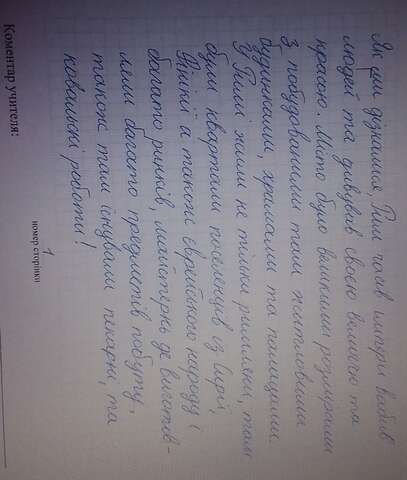 Як ми дізнались Рим часів імперії вабив
людей та дивував своєю величчю та
красою. Місто було великими розмірами
з побудованими там житловими
будинками, храмами та палацами.
У Римі жили не тільки римляни, там
були квартали поселенців із Сирії,
Фінікії а також єврейського народу і
багато ринків, майстерень де виготов-
ляли багато предметів побуту,
також там існували пекарні, та
ковальскі роботи!
1
номер сторінки
Коментар учителя: